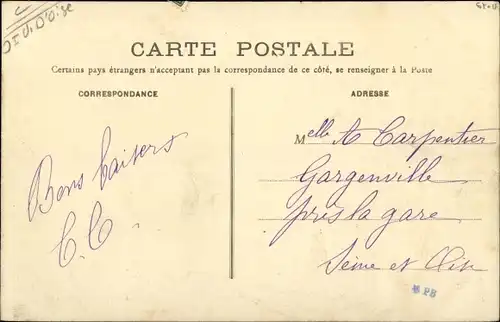 CARTE POSTALE
Certains pays étrangers n'acceptant pas la correspondance de ce côté, se renseigner à la Poste
CORRESPONDANCE
ADRESSE
Bons baisers
C. C
Melle A Carpentier
Gargenville
près la gare
Seine et Oise
PB